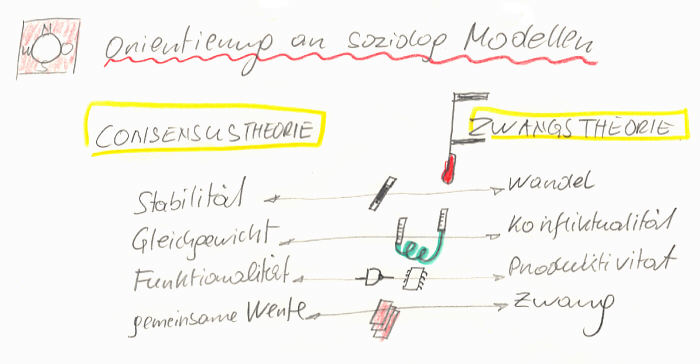 N
W O
S
Orientierung an soziolog Modellen
CONSENSUSTHEORIE ZWANGSTHEORIE
Stabilität Wandel
Gleichgewicht Konfliktualität
Funktionalität Produktivität
gemeinsame Werte Zwang